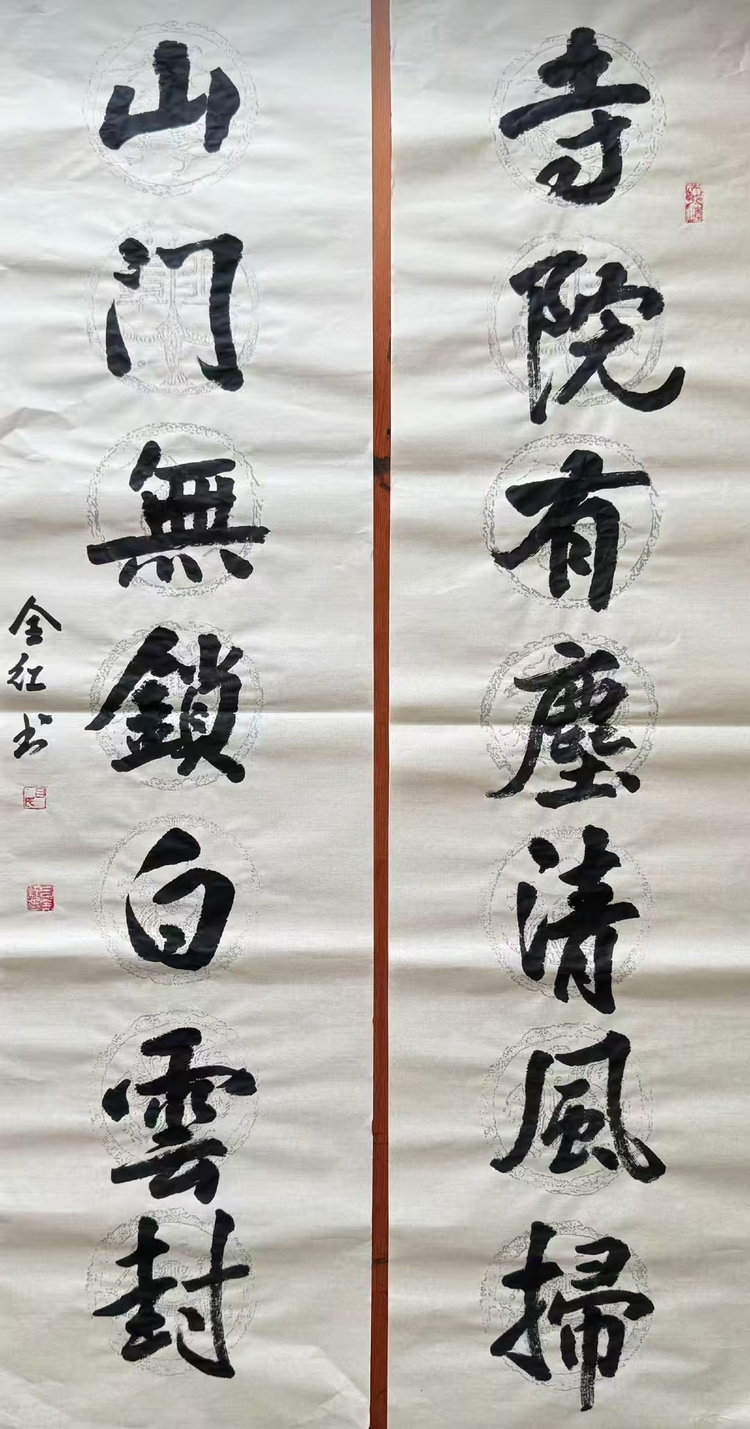 寺院有塵清風掃
山門無鎖白雲封
全红书